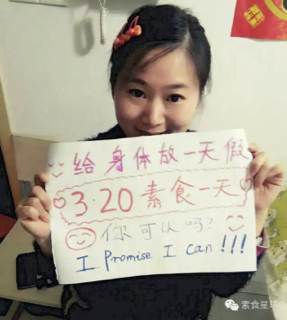 给身体放一天假
3·20素食一天
你可以吗?
I Promise I can!!!
素食星球